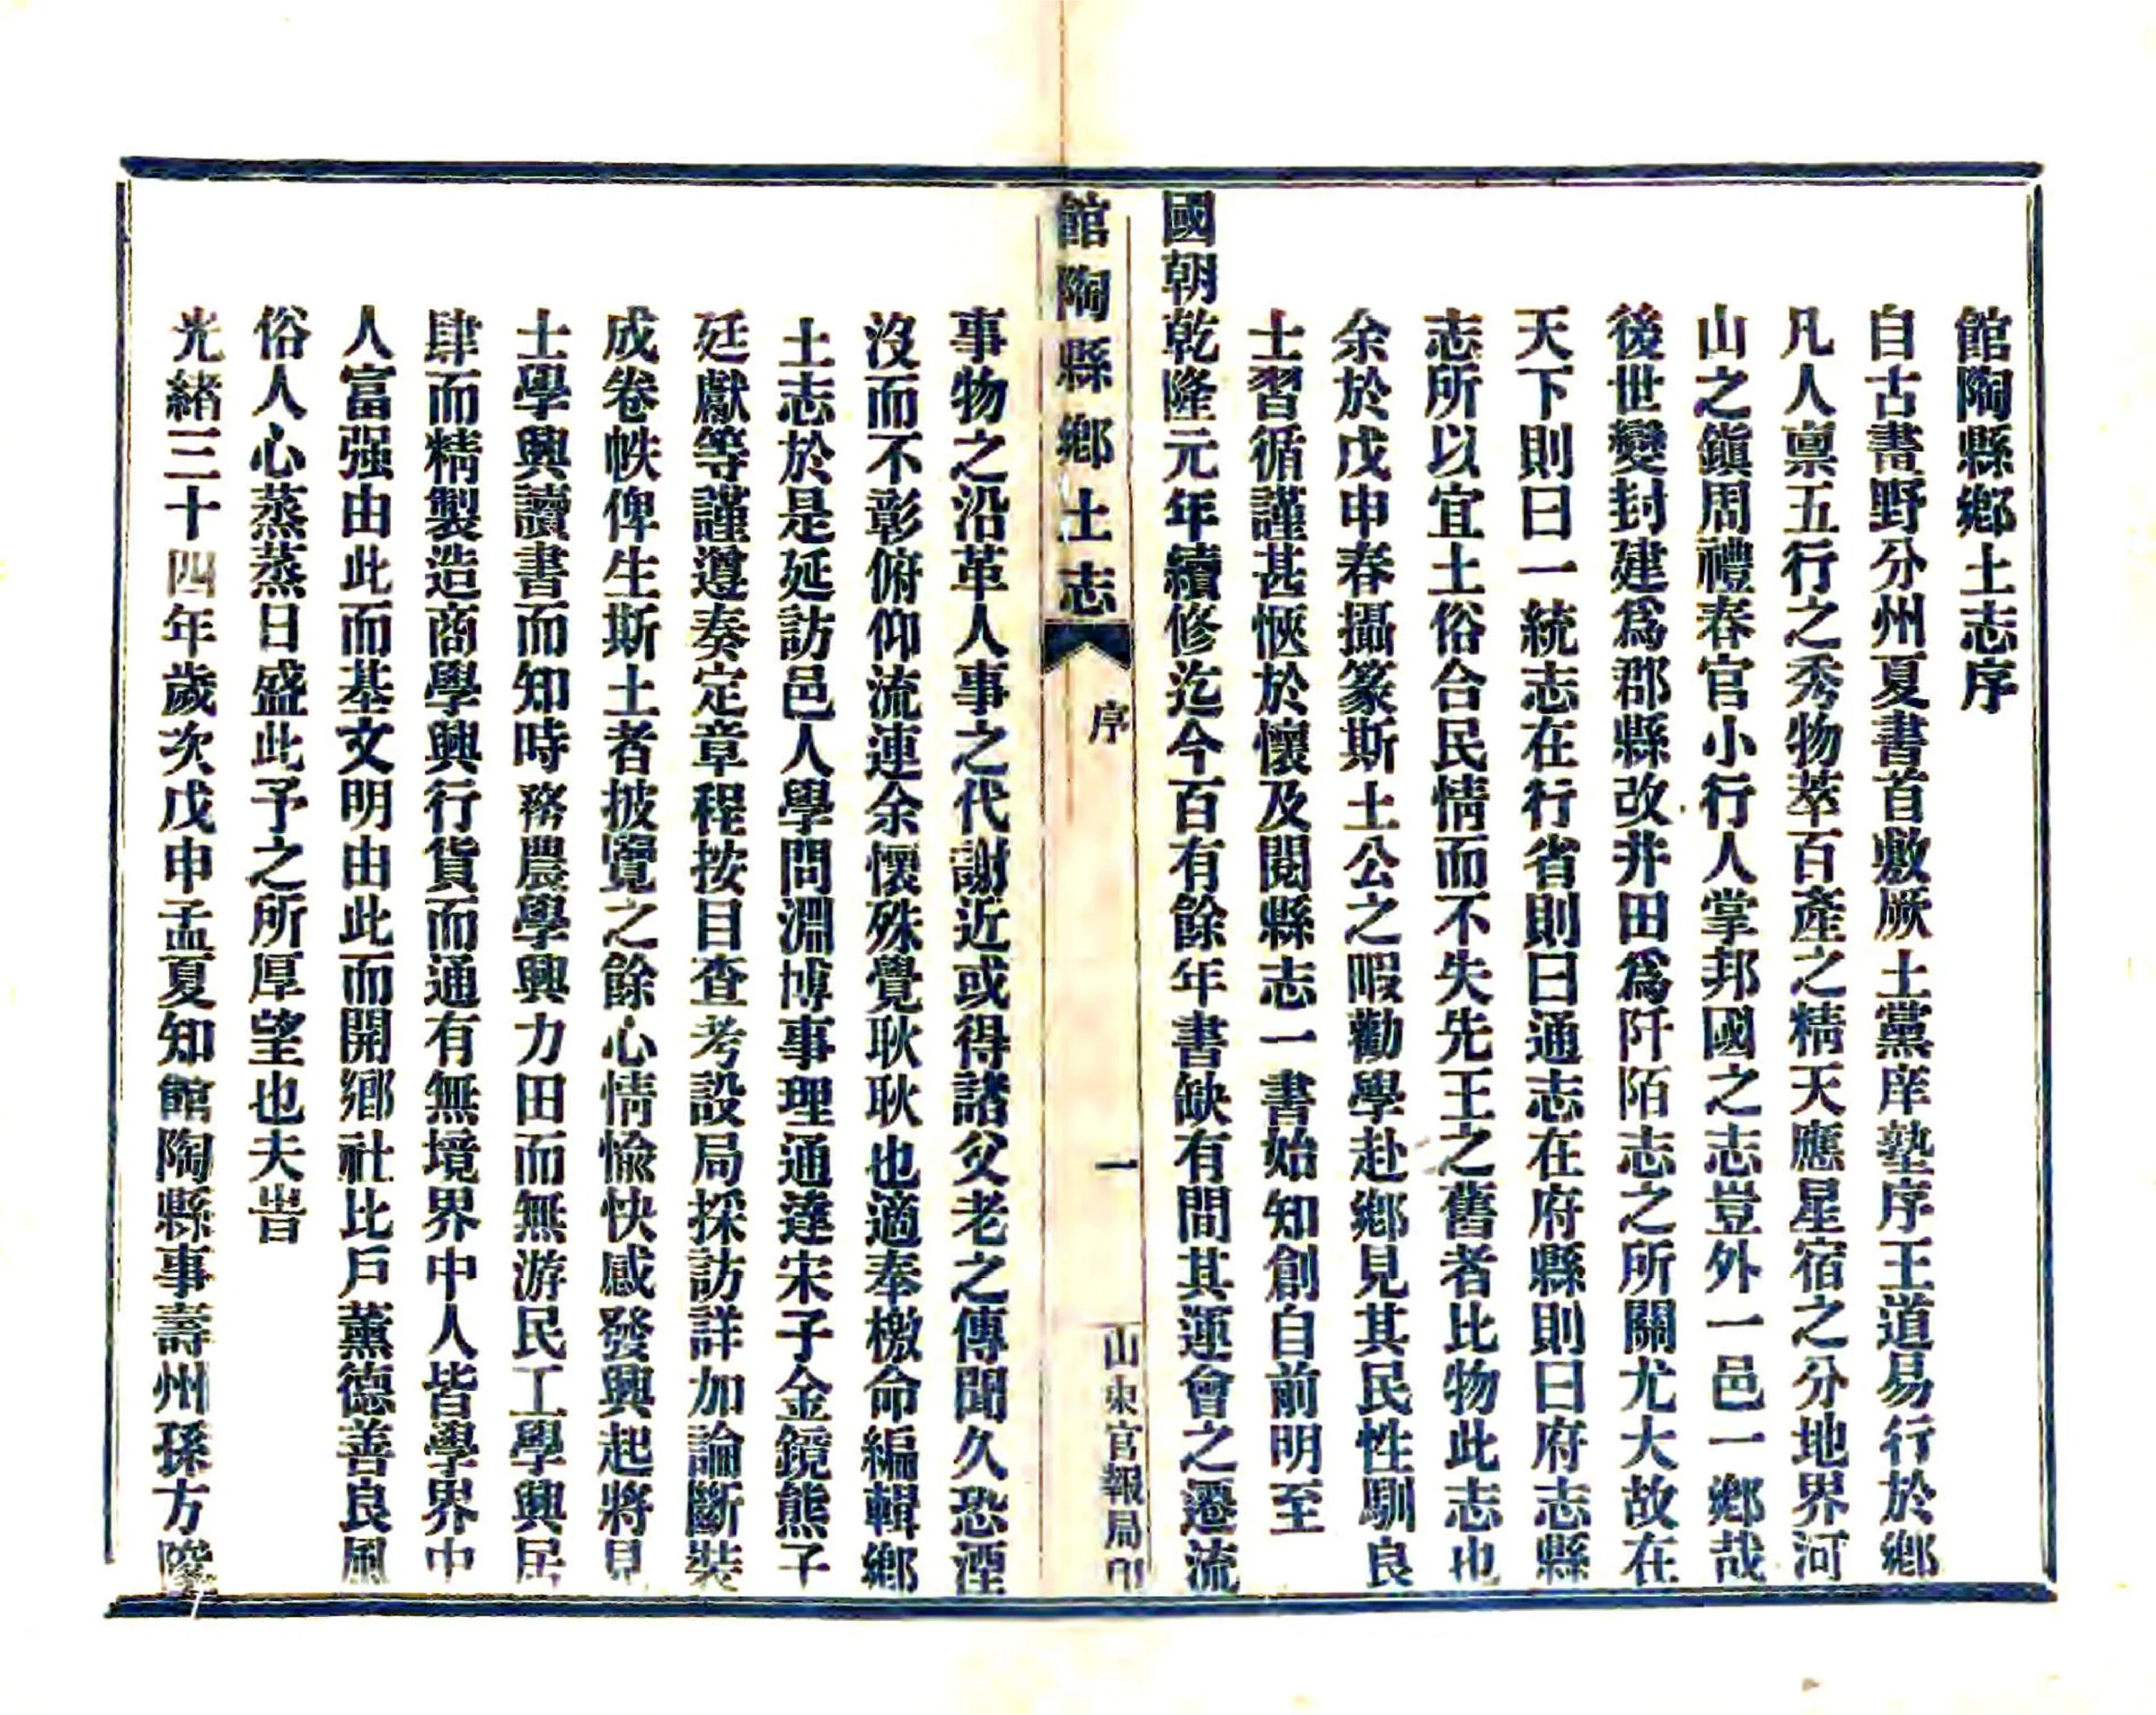 館陶縣鄉土志序
自古畫野分州夏書首敷厥土黨庠塾序王道易行於鄉
凡人禀五行之秀物萃百產之精天應星宿之分地界河
山之鎭周禮春官小行人掌邦國之志豈外一邑一鄉哉
後世變封建爲郡縣改井田爲阡陌志之所關尤大故在
天下則曰一統志在行省則曰通志在府縣則曰府志縣
志所以宜土俗合民情而不失先王之舊者比物此志也
余於戊申春攝篆斯土公之暇勸學赴鄉見其民性馴良
士習循謹甚愜於懷及閱縣志一書始知創自前明至
國朝乾隆元年續修迄今百有餘年書缺有間其運會之遷流
館陶縣鄉土志
序
一
山東官報局印
事物之沿革人事之代謝近或得諸父老之傳聞久恐湮
沒而不彰俯仰流連余懷殊覺耿耿也適奉檄命編輯鄉
土志於是延訪邑人學問淵博事理通達宋子金鏡熊子
廷獻等謹遵奏定章程按目查考設局採訪詳加論斷裝
成卷帙俾生斯土者披覽之餘心情愉快感發興起將見
士學興讀書而知時務農學興力田而無游民工學興居
肆而精製造商學興行貨而通有無境界中人皆學界中
人富强由此而基文明由此而開鄉社比戶薰德善良風
俗人心蒸蒸日盛此予之所厚望也夫旹
光緒三十四年歲次戊申孟夏知館陶縣事壽州孫方陞